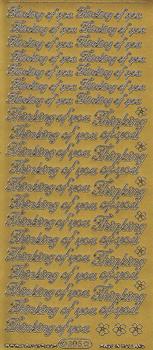 Thinking of you Thinking of you
Thinking of you Thinking of you
Thinking of you Thinking of you
Thinking of you Thinking of you
Thinking of you Thinking of you
Thinking of you Thinking of you
Thinking of you Thinking of you
Thinking of you Thinking
Thinking of you of you
Thinking of you Thinking
Thinking of you of you
Thinking of you Thinking
Thinking of you of you
Thinking of you Thinking
Thinking of you of you
Thinking of you Thinking
Thinking of you of you
Thinking of you Thinking
Thinking of you of you
Thinking of you